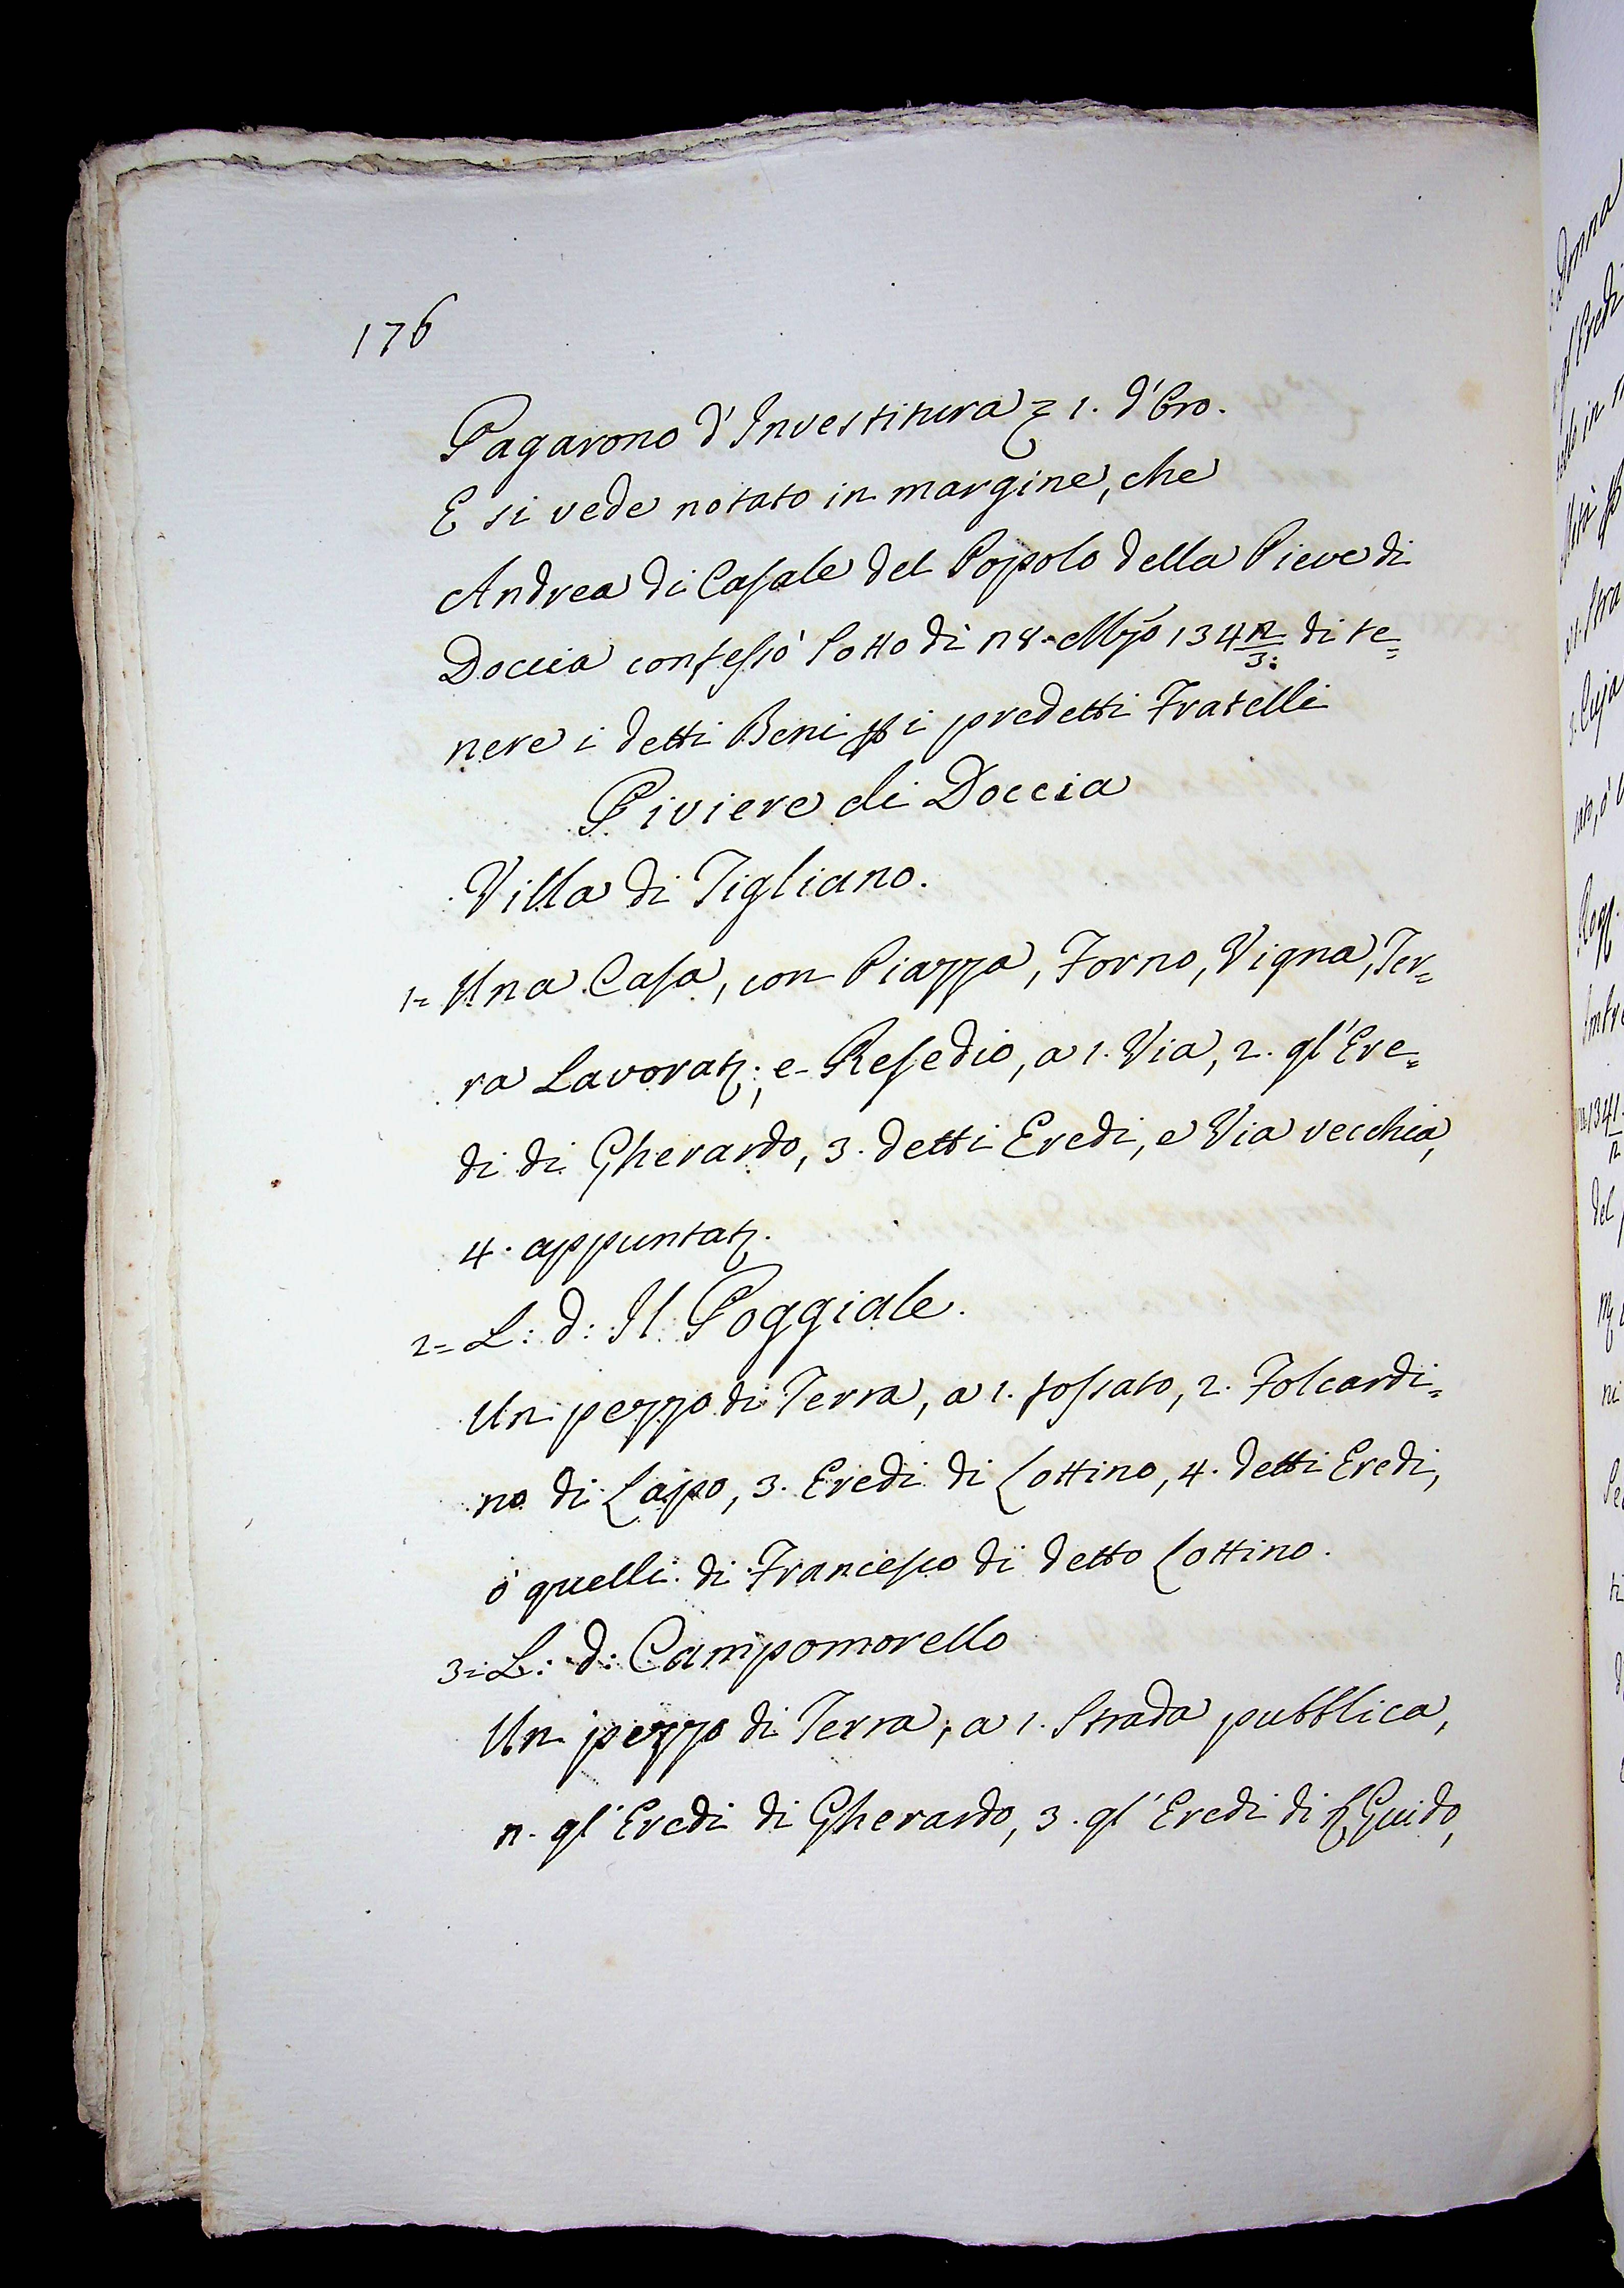 176
Pagarono d'Investitura 1. d'Oro.
E si vede notato in margine, che
Andrea di Casale del Popolo della Pieve di
Doccia confessò Sotto dì 28. Mzo 1342/3: di te=
nere i detti Beni p i predetti Fratelli
Piviere di Doccia
Villa di Tigliano.
1= Una Casa, con Piazza, Forno, Vigna, Ter=
ra Lavorat:, e Resedio, a 1. Via, 2. gl'Ere=
di di Gherardo, 3. detti Eredi, e Via vecchia,
4. appuntat.
2= L: d: Il Poggiale.
Un pezzo di Terra, a 1. fossato, 2. Folcardi=
no di Lapo, 3. Eredi di Lottino, 4. detti Eredi,
ò quelli di Francesco di detto Lottino.
3= L: d: Campomorello
Un pezzo di Terra, a 1. Strada pubblica,
2. gl'Eredi di Gherardo, 3. gl'Eredi di Guido,